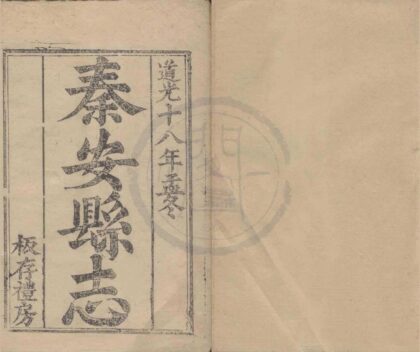 道光十八年孟冬
秦安縣志
板存禮房